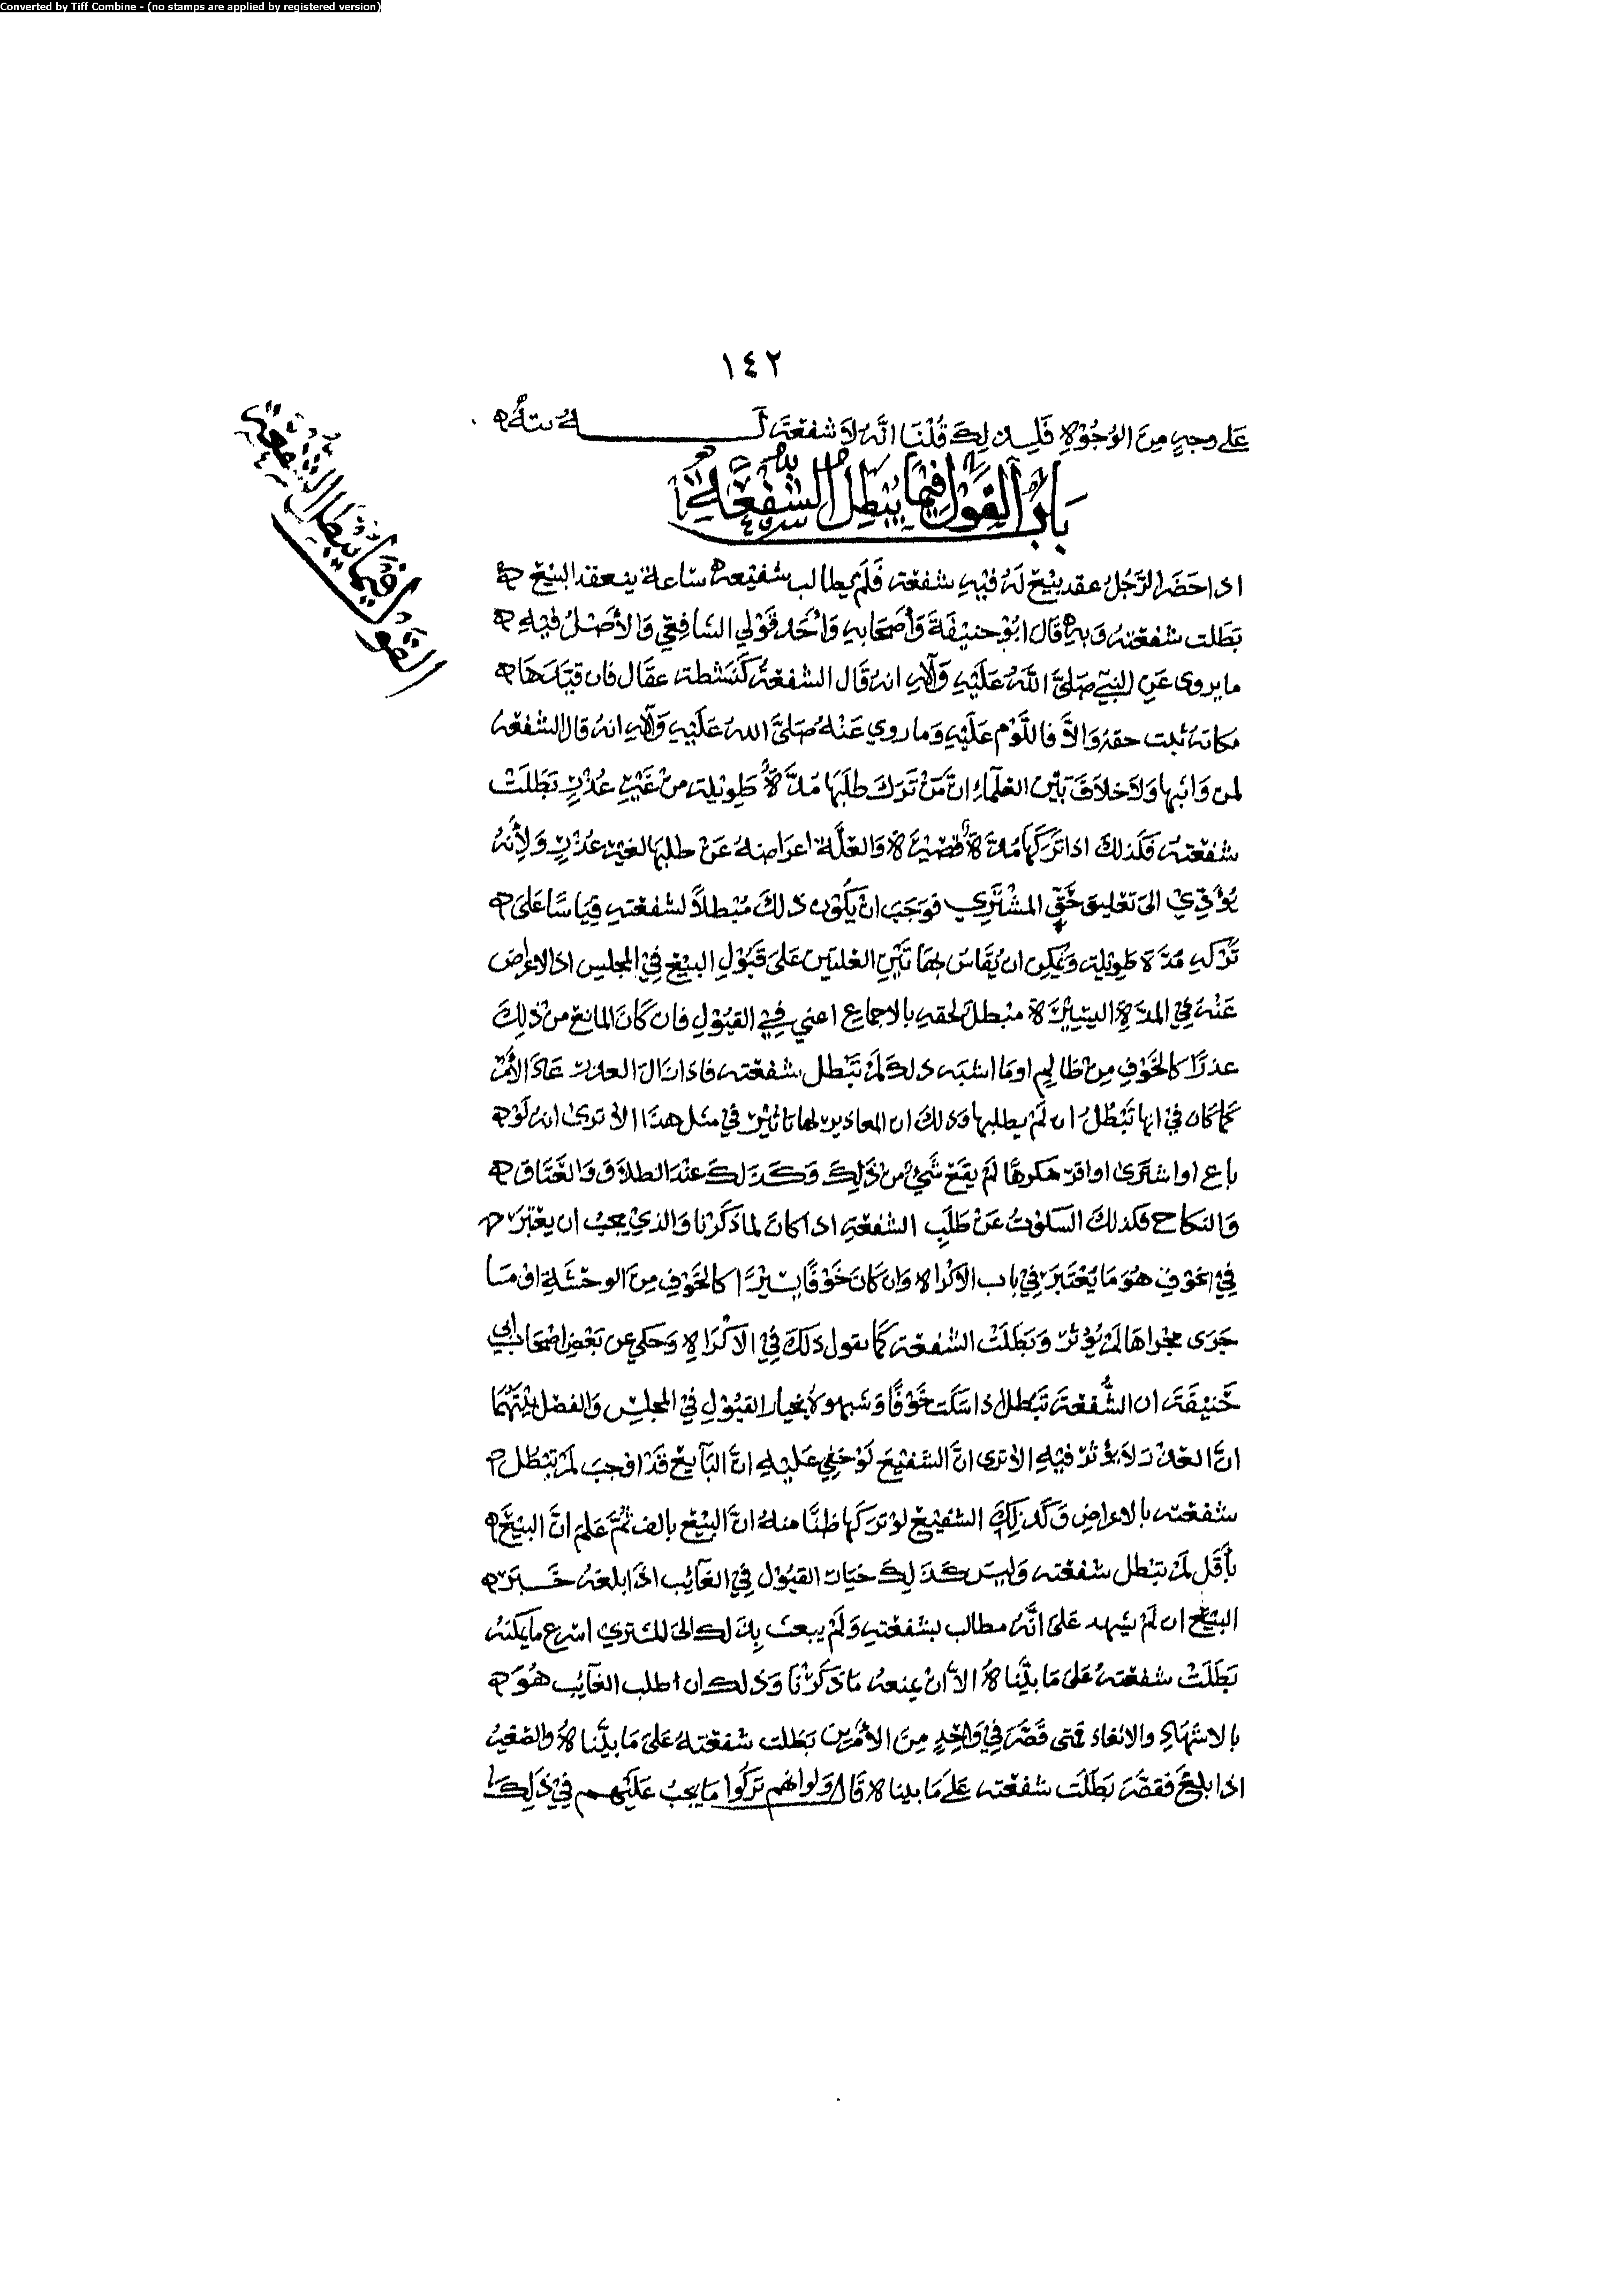 Converted by Tiff Combine - (no stamps are applied by registered version)
١٤٢
على وجهٍ مِنَ الوُجُوْهِ فَلِذلِكَ قُلْنَا انَّهُ لاَ شفعَةَ لَهُ
بَابُ القَوْلِ فِيْمَا يُبْطِلُ الشُّفْعَةَ
القول فيما يبطل الشفعة
اذا حَضَرَ الرَّجُلُ عقد بَيْعٍ لَهُ فيْهِ شفعته فَلَمْ يطالب شفيعه سَاعة ينعقد البَيْع
بَطَلت شفعَتهُ وَبِه قَالَ ابُوْ حنيْفَةَ وَأَصْحَابه وَأَحَد قَوْلي الشافعِيّ وَالأَصْلُ فيْهِ
ما يروى عَنِ النبيّ صَلىَّ اللَّهُ عَلَيْهِ وَآلِهِ انهُ قَالَ الشفعَةُ كَنشْطة عقَال فان قيَّدَهَا
مكانهُ ثبت حقهُ وَالاَّ فاللَّوْم عَلَيْهِ وَما روي عَنْهُ صَلىَّ اللهُ عَلَيْهِ وَآلِهِ انهُ قال الشفعة
لمن وَاثبها وَلاَ خلاَفَ بَيْنَ العُلَمَاءِ انَّ مَنْ تَرَكَ طلَبَها مُدَّةً طَوِيْلة منْ غَيْرِ عُذْرٍ بَطَلَتْ
شفعَتهُ فكَذلكَ اذا تَرَكَهَا مُدةً قصيْرَةً وَالعلَّة اعراضهُ عَنْ طلبهَا لغير عُذْرٍ وَلأَنهُ
يُؤَدِّيْ الىَ تعليق حَقِّ المشْتَرِي فوَجَبَ انْ يكُوْن ذلكَ مُبْطلاً لشفعته قِيَاسًا عَلىَ
تَرْكهِ مُدَّةً طَوِيْلة وَيمكن ان يُقاسَ بهَاتَيْنِ العلتين عَلىَ قَبُوْلِ البَيْع فيْ المجلس اذ الاعراض
عَنْهُ فِيْ المُدَّةِ اليَسِيْرَةِ مبْطلٌ لحقهِ بالاجماع اعني فيْ القبُوْلِ فان كَانَ المانع منْ ذلِكَ
عذرًا كالخَوْفِ مِنْ ظالِمٍ اوما اشبَهَ ذلكَ لَمْ تَبْطل شفعَته فاذا زال العذر عَادَ الأَمْرُ
كما كان فيْ انها تَبْطُلُ ان لَمْ يطلبها وَذلكَ ان المعاذير لها تاثيْر فيْ مثل هذا الا ترى انه لوْ
باع او اشترى او اقرّ مكرهًا لَمْ يقَعْ شَيْءٌ منْ ذَلِكَ وَكَذَلكَ عنْدَنا الطلاَق وَالعَتَاق
وَالنكاح فكذلكَ السكُوْتُ عَنْ طَلَبِ الشفعَةِ اذا كانَ لما ذَكَرْنا وَالذيْ يجبُ ان يعْتَبَرَ
فيْ الخوْفِ هُوَ مَا يُعْتَبَرَ فيْ باب الاكْراهِ وَان كَانَ خَوْفًا يَسِيْرًا كالخَوْفِ مِنَ الوحشَةِ اوْ مَا
جَرَى مجراهَا لَمْ يُؤثرْ وَبَطَلَتْ الشفعَة كما نقول ذلكَ فيْ الاكْرَاهِ وَحكي عن بَعْضِ اصْحَابِ أبي
حَنيْفَةَ ان الشُّفعَةَ تَبْطل اذا سَكَتَ خَوْفًا وَشبهوهُ بخيار القبُوْلِ فيْ المجلسِ وَالفصْل بَيْنَهُمَا
انَّ العذْرَ لاَ يُؤثرُ فيْهِ الا ترى انَّ الشفيْعَ لوْ خفِيَ عَليْهِ انَّ البَائِعَ قَدْ اوْجبَ لَمْ تبْطُلْ
شفعَته بالاعراضِ وَكَذلِكَ الشفيْع لوْ تركَها ظنًّا منهُ انَّ البَيْع بالف ثُمَّ عَلم انَّ البَيْعَ
بأقَل لَمْ تبْطل شفعَته وَليسَ كَذَلِكَ خيار القبُوْل فيْ الغَائِب اذَا بلغهُ خَبَر
البَيْع ان لَمْ يُشهد عَلىَ انَّهُ مطالب بشفعَتهِ وَلَمْ يبعث بذلكَ الىَ المشتريْ اسْرع ما يمكنهُ
بَطَلَتْ شفعَتهُ عَلىَ مَا بَيَّناهُ الاَّ انْ يمنعهُ مَا ذَكَرْنَا وَذلكَ ان طلب الغَائِب هُوَ
بالاشهَادِ والانفاذ فمتى قَصَّرَ فِيْ وَاحِدٍ مِنَ الأَمْرَيْنِ بَطَلت شفعَتهُ عَلىَ مَا بَيَّناهُ والصغير
اذا بلغَ فقصَّرَ بَطَلَتْ شفعَته عَلىَ مَا بيناه قَالَ وَلوانهُم تَرَكُوا مَا يجبُ عَلَيْهم فيْ ذَلِكَ